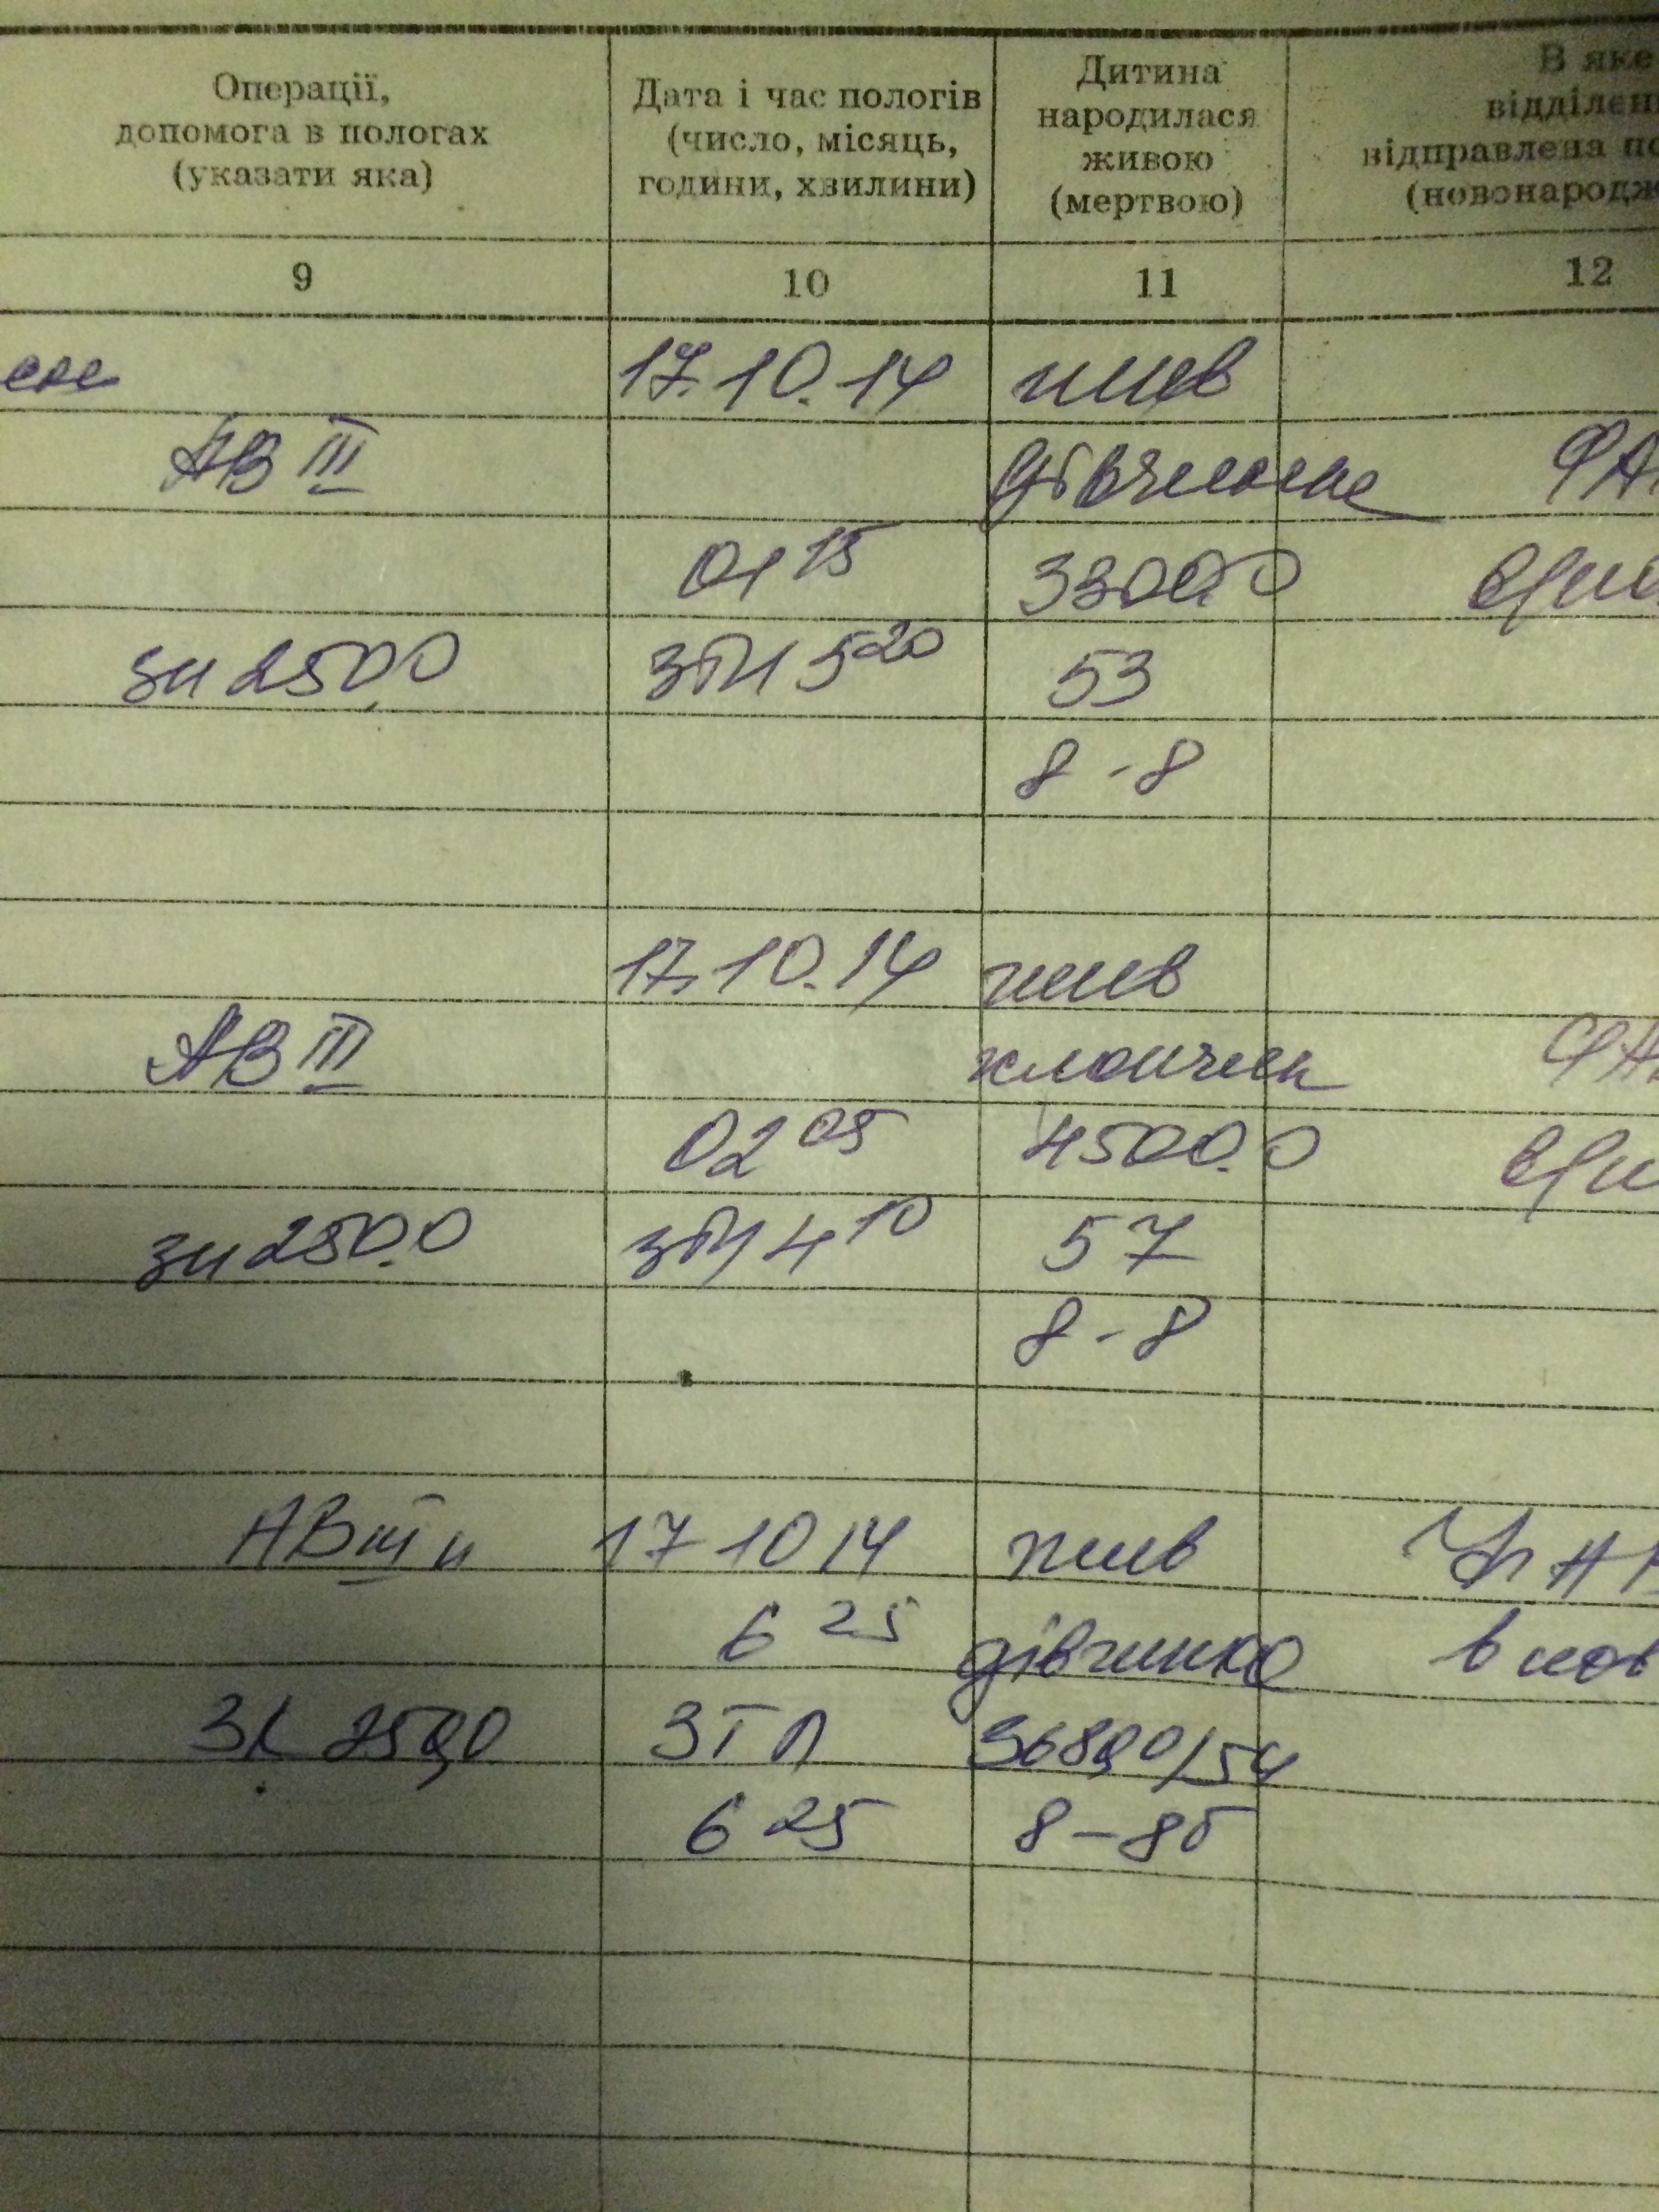 Операції,
допомога в пологах
(указати яка)
Дата і час пологів
(число, місяць,
години, хвилини)
Дитина
народилася
живою
(мертвою)
В яке
відділен
відправлена по
(новонародж
9 10 11 12
17.10.14 жив
АВ III дівчинка ФА
01 15 3300.0
зк 250,0 ЗТП 5 20 53
8 - 8
17.10.14 жив
АВ III хлопчик ФА
02 05 4500.0
зк 250.0 ЗТП 4 10 57
8 - 8
АВ III п 17 10 14 жив
6 25 дівчинка в нов
ЗК 250,0 ЗТП 3680,0/54
6 25 8 - 8б